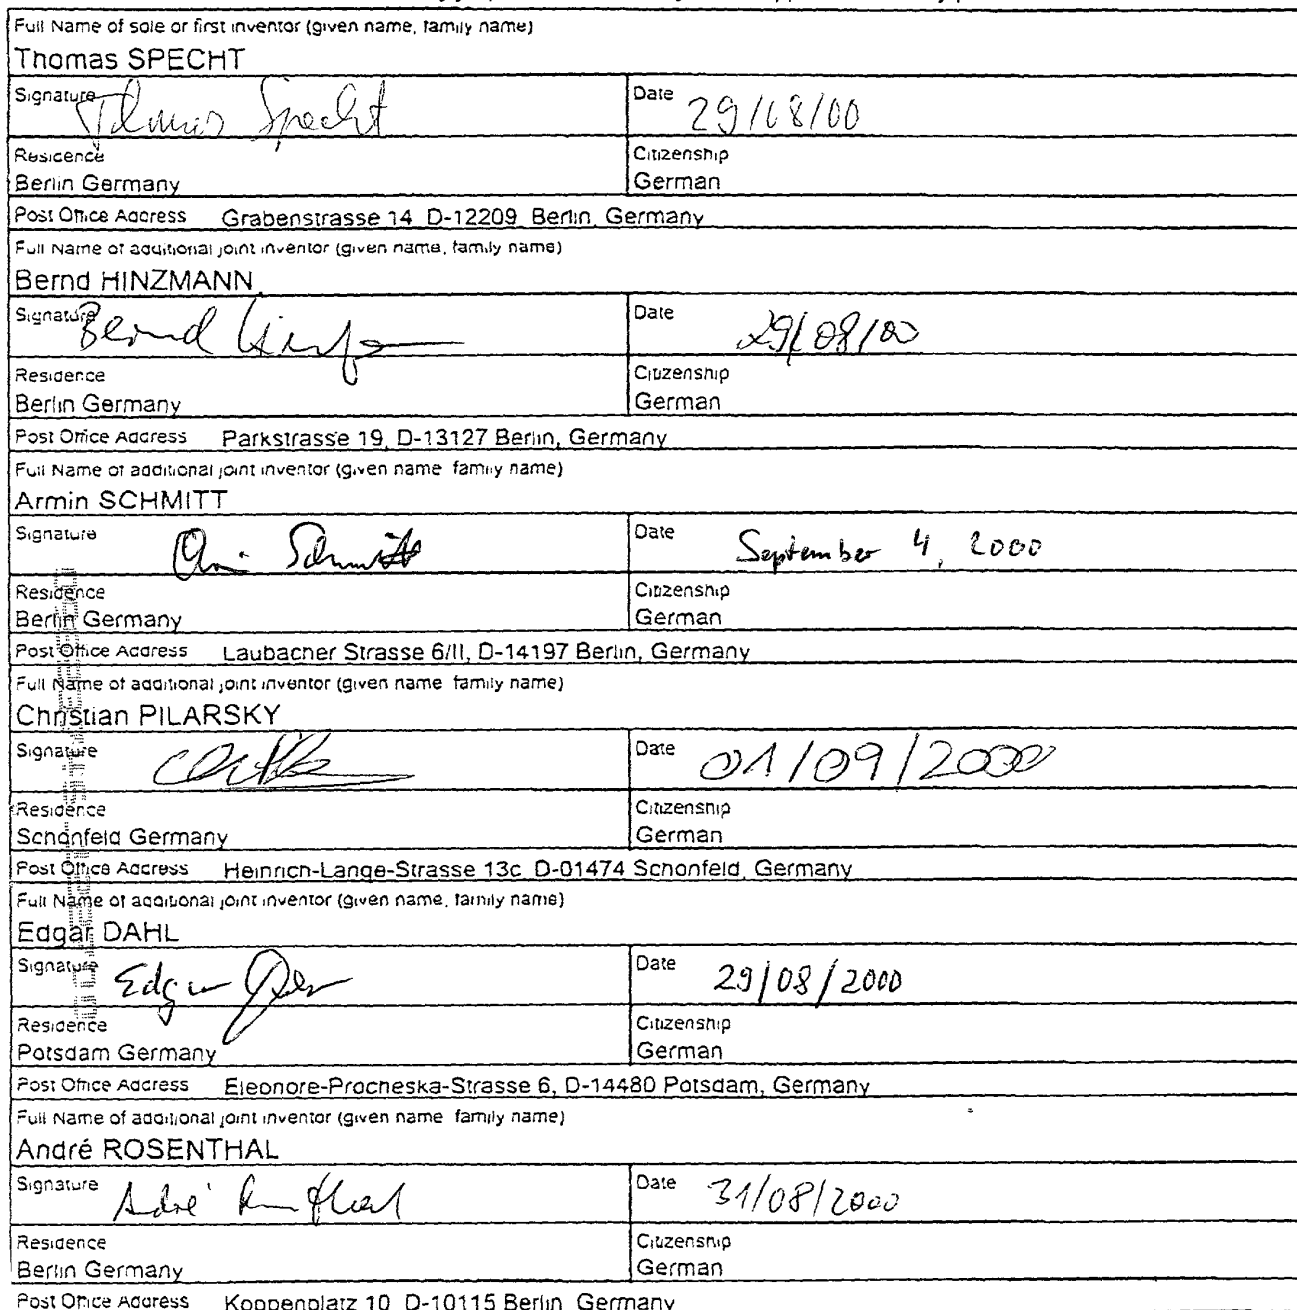 Full Name of sole or first inventor (given name, family name)
Thomas SPECHT
Signature Thomas Specht Date 29/08/00
Residence Citizenship
Berlin Germany German
Post Office Address Grabenstrasse 14, D-12209 Berlin, Germany
Full Name of additional joint inventor (given name, family name)
Bernd HINZMANN
Signature Bernd Date 29/08/00
Residence Citizenship
Berlin Germany German
Post Office Address Parkstrasse 19, D-13127 Berlin, Germany
Full Name of additional joint inventor (given name family name)
Armin SCHMITT
Signature Schmitt Date September 4, 2000
Residence Citizenship
Berlin Germany German
Post Office Address Laubacher Strasse 6/II, D-14197 Berlin, Germany
Full Name of additional joint inventor (given name family name)
Christian PILARSKY
Signature Date 01/09/2000
Residence Citizenship
Schonfeld Germany German
Post Office Address Heinrich-Lange-Strasse 13c D-01474 Schonfeld, Germany
Full Name of additional joint inventor (given name, family name)
Edgar DAHL
Signature Edgar Date 29/08/2000
Residence Citizenship
Potsdam Germany German
Post Office Address Eleonore-Procheska-Strasse 6, D-14480 Potsdam, Germany
Full Name of additional joint inventor (given name family name)
André ROSENTHAL
Signature André Rosenthal Date 31/08/2000
Residence Citizenship
Berlin Germany German
Post Office Address Koppenplatz 10 D-10115 Berlin Germany